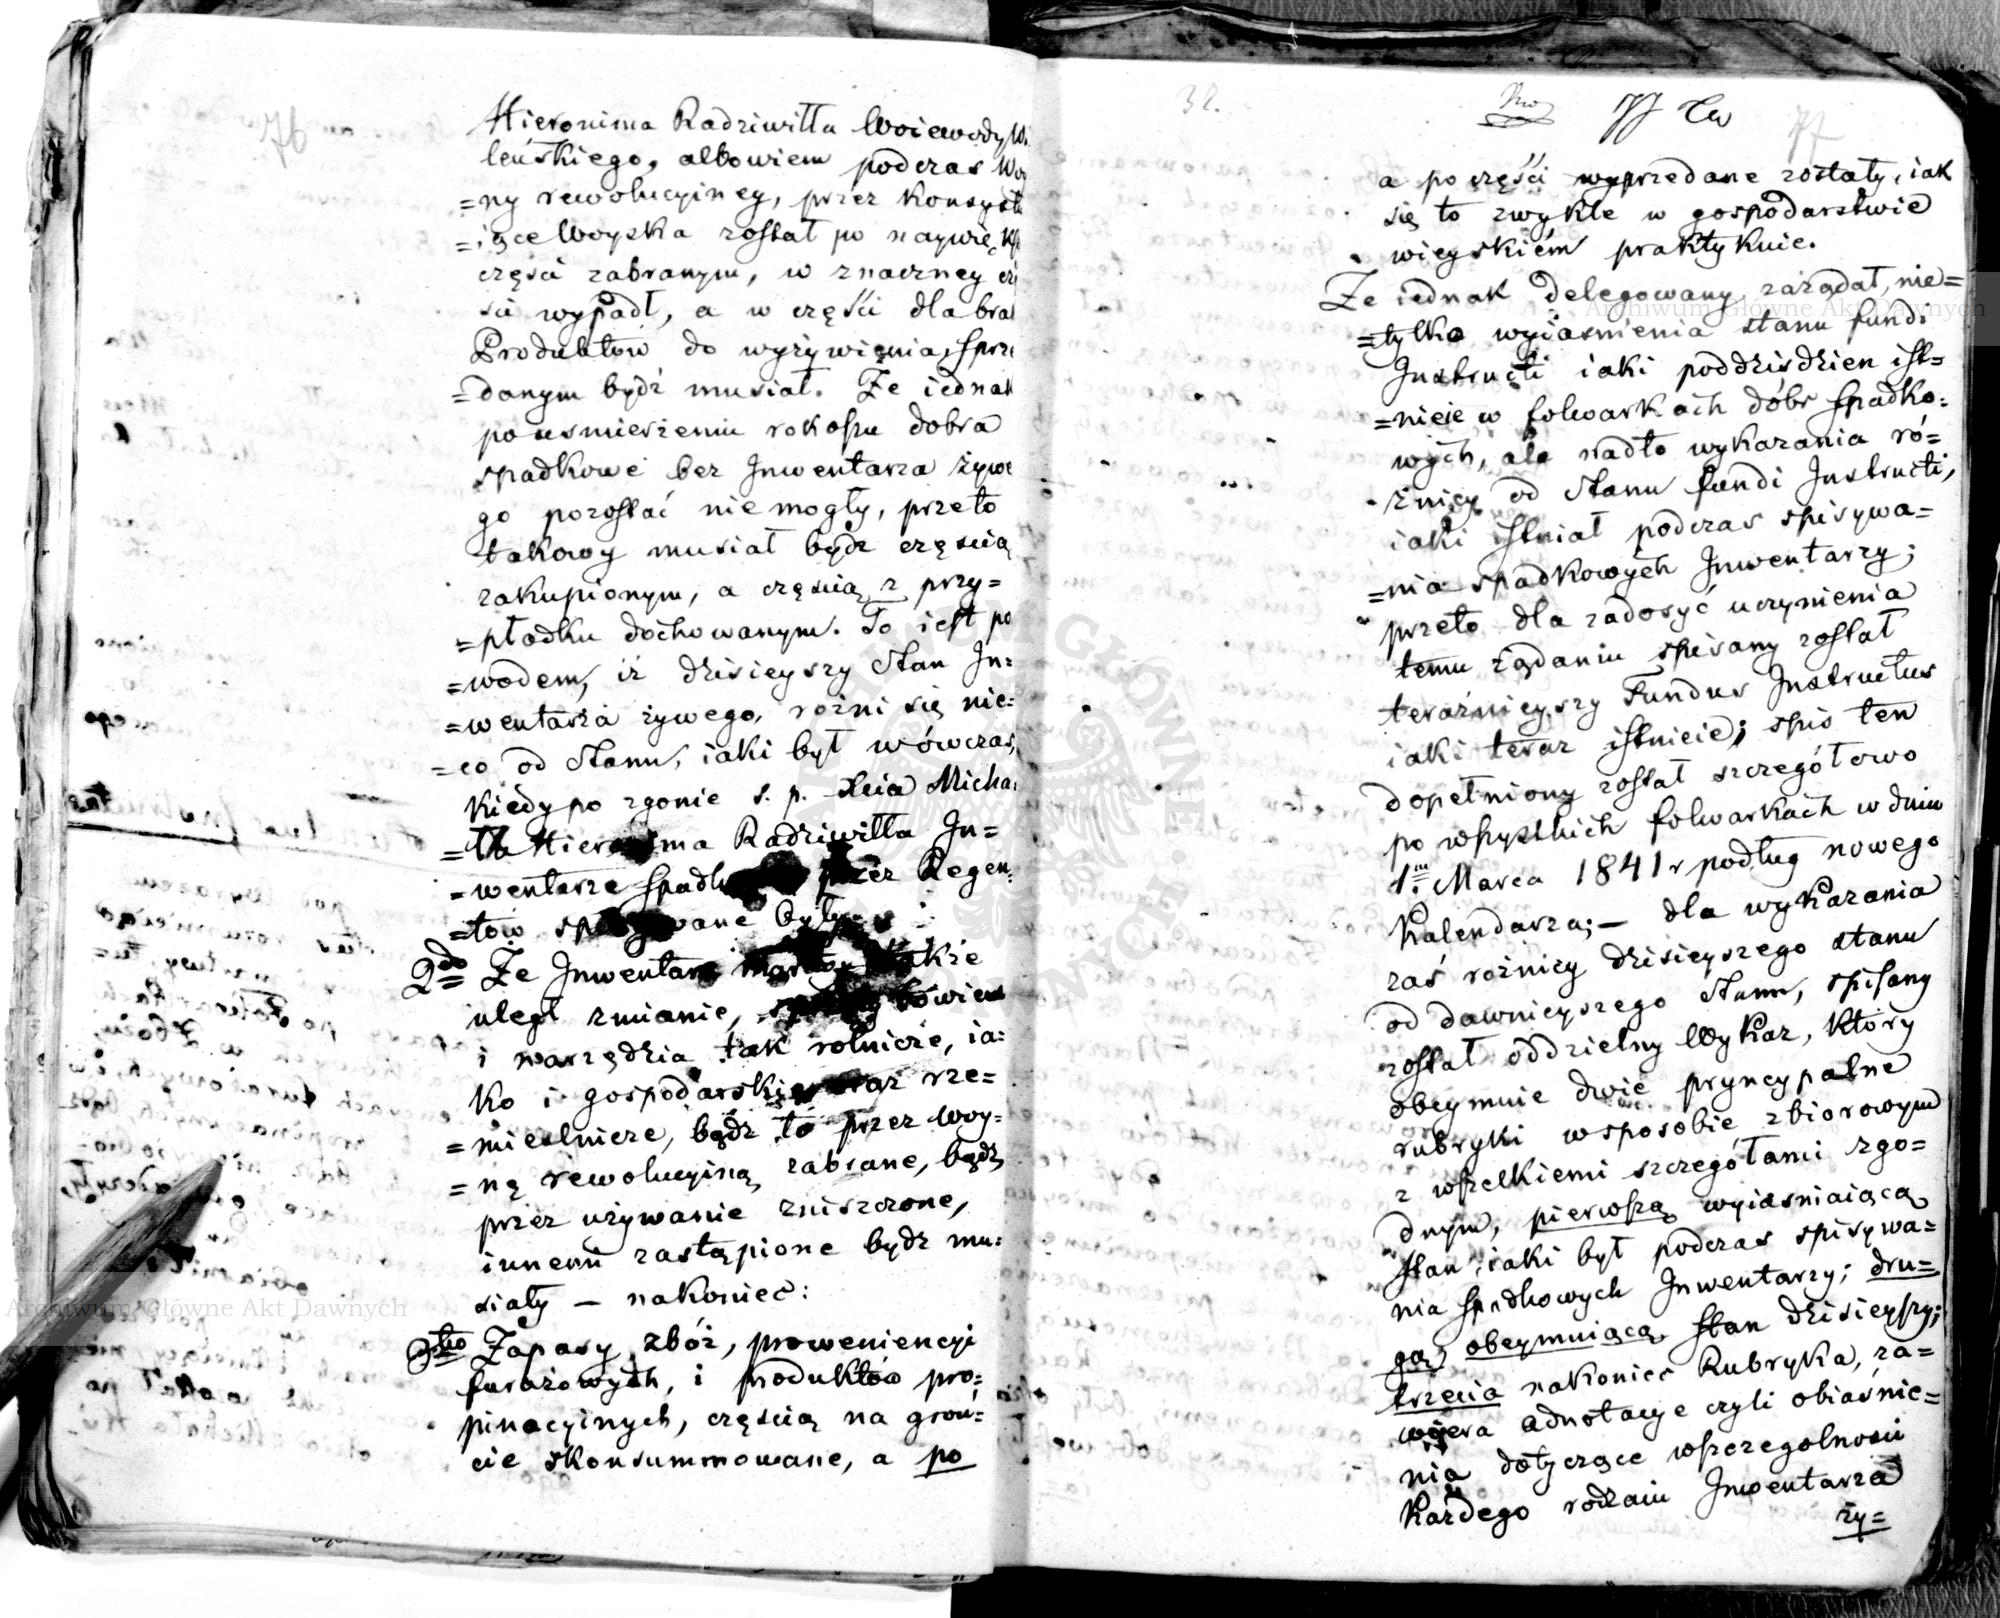 76
Hieronima Radziwiłła Woiewody Wi
leńskiego, albowiem podczas Woy
=ny rewolucyiney, przez konsystu
=iące Woyska został po naywięks
części zabranym, w znaczney czę
ści wypadł, a w części dla bra
Produktów do wyżywienia, sprze
=danym bydź musiał. Że iednak
po uśmierzeniu rokoszu dobra
spadkowe bez Inwentarza żywe
go pozostać nie mogły, przeto
takowy musiał bydz częścią
zakupionym, a częścią z przy=
=płodku dochowanym. To iest po
=wodem, iż dzisieyszy Stan In=
=wentarza żywego, rożni się nie=
=co od Stanu, iaki był wówczas,
kiedy po zgonie s. p. Xcia Micha=
=ła Hieronima Radziwiłła In=
=wentarze spadkowe przez Regen=
=tów spisywane były.
2do Że Inwentarz martwy także
uległ zmianie, bowiem
i narzędzia tak rolnicze, ia=
ko i gospodarskie oraz rze=
=mieślnicze, bądz to przez woy=
=nę rewolucyiną zabrane, bądz
przez używanie zniszczone,
innemi zastąpione bydz mu=
siały — nakoniec:
3tio Zapasy zbóż, proweniencyi
furażowych, i produktów pro=
pinacyinych, częścią na grun=
cie skonsummowane, a po
32.
77
77
a po części wyprzedane zostały, iak
się to zwykle w gospodarstwie
wieyskiém praktykuie.
Że iednak delegowany zażądał, nie=
=tylko wyiaśnienia stanu fundi
Instructi iaki poddziśdzien ist=
=nieie w folwarkach dóbr spadko=
wych, ale nadto wykazania ró=
żnicy od Stanu fundi Instructi,
iaki istniał podczas spisywa=
=nia spadkowych Inwentarzy;
przeto dla zadosyć uczynienia
temu żądaniu spisany został
teraźnieyszy Fundus Instructus
iaki teraz istnieie; spis ten
dopełniony został szczegółowo
po wszystkich folwarkach w dniu
1m Marca 1841 r podług nowego
Kalendarza; — dla wykazania
zaś rożnicy dzisieyszego stanu
od dawnieyszego Stanu, spisany
został oddzielny Wykaz, który
obeymuie dwie pryncypalne
rubryki w sposobie zbiorowym
z wszelkiemi szczegółami zgo=
dnym, pierwszą wyiaśniaiącą
stan iaki był podczas spisywa=
nia spadkowych Inwentarzy; dru=
gą, obeymuiącą stan dzisieyszy;
trzecia nakoniec Rubryka, za=
wiera adnotacye czyli obiaśnie=
nia dotyczące wszczegolności
każdego rodzaiu Inwentarza
ży=
Archiwum Główne Akt Dawnych
Archiwum Główne Akt Dawnych
ARCHIWUM GŁÓWNE AKT DAWNYCH